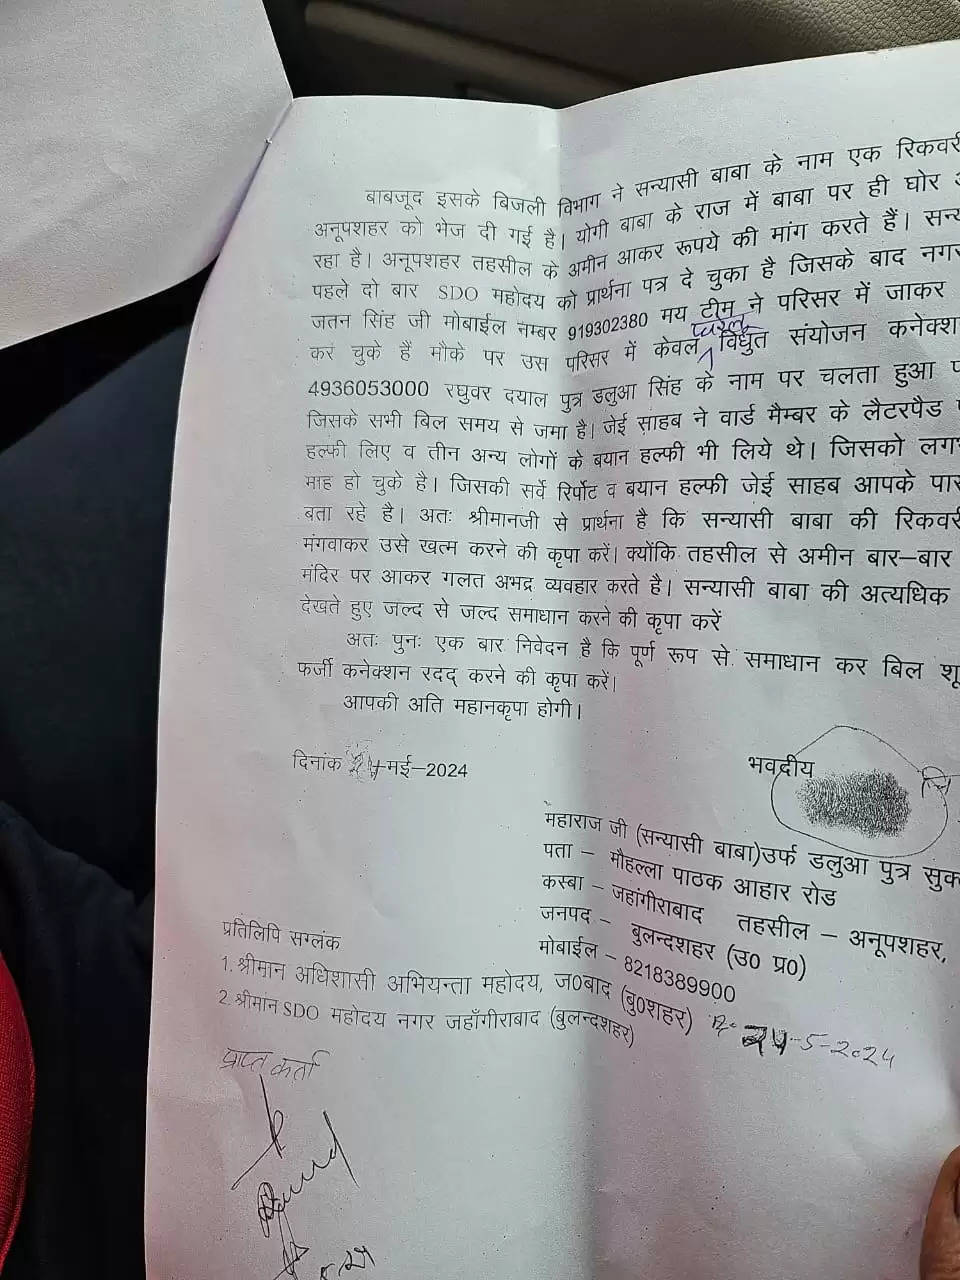 बाबजूद इसके बिजली विभाग ने सन्यासी बाबा के नाम एक रिकवरी
अनूपशहर को भेज दी गई है। योगी बाबा के राज में बाबा पर ही घोर
रहा है। अनूपशहर तहसील के अमीन आकर रूपये की मांग करते हैं। सन्य
पहले दो बार SDO महोदय को प्रार्थना पत्र दे चुका है जिसके बाद नगर
जतन सिंह जी मोबाईल नम्बर 919302380 मय टीम ने परिसर में जाकर
कर चुके हैं मौके पर उस परिसर में केवल घरेलू विधुत संयोजन कनेक्श
4936053000 रघुवर दयाल पुत्र डलुआ सिंह के नाम पर चलता हुआ
जिसके सभी बिल समय से जमा है। जेई साहब ने वार्ड मैम्बर के लैटरपैड
हल्फी लिए व तीन अन्य लोगों के बयान हल्फी भी लिये थे। जिसको लगभ
माह हो चुके है। जिसकी सर्वे रिर्पोट व बयान हल्फी जेई साहब आपके पास
बता रहे है। अतः श्रीमानजी से प्रार्थना है कि सन्यासी बाबा की रिकवरी
मंगवाकर उसे खत्म करने की कृपा करें। क्योंकि तहसील से अमीन बार–बार
मंदिर पर आकर गलत अभद्र व्यवहार करते है। सन्यासी बाबा की अत्यधिक
देखते हुए जल्द से जल्द समाधान करने की कृपा करें
अतः पुनः एक बार निवेदन है कि पूर्ण रूप से समाधान कर बिल शू
फर्जी कनेक्शन रदद् करने की कृपा करें।
आपकी अति महानकृपा होगी।
दिनांक 24–मई–2024
भवदीय
महाराज जी (सन्यासी बाबा)उर्फ डलुआ पुत्र सुक
पता – मौहल्ला पाठक आहार रोड
कस्बा – जहांगीराबाद तहसील – अनूपशहर,
जनपद – बुलन्दशहर (उ0 प्र0)
मोबाईल – 8218389900
प्रतिलिपि सग्लंक
1. श्रीमान अधिशासी अभियन्ता महोदय, ज0बाद (बु0शहर)
2. श्रीमान SDO महोदय नगर जहाँगीराबाद (बुलन्दशहर)
24-5-2024
प्राप्त कर्ता